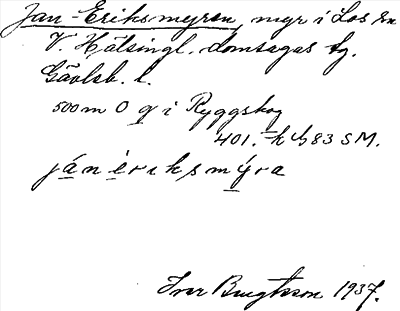 Jan-Eriksmyren, myr i Los sn
V. Hälsingl. domsagas tg.
Gävleb. l.
500 m O g i Ryggskog
401. h b 83 SM.
ján èriksmýra
Ivar Bengtsson 1937.